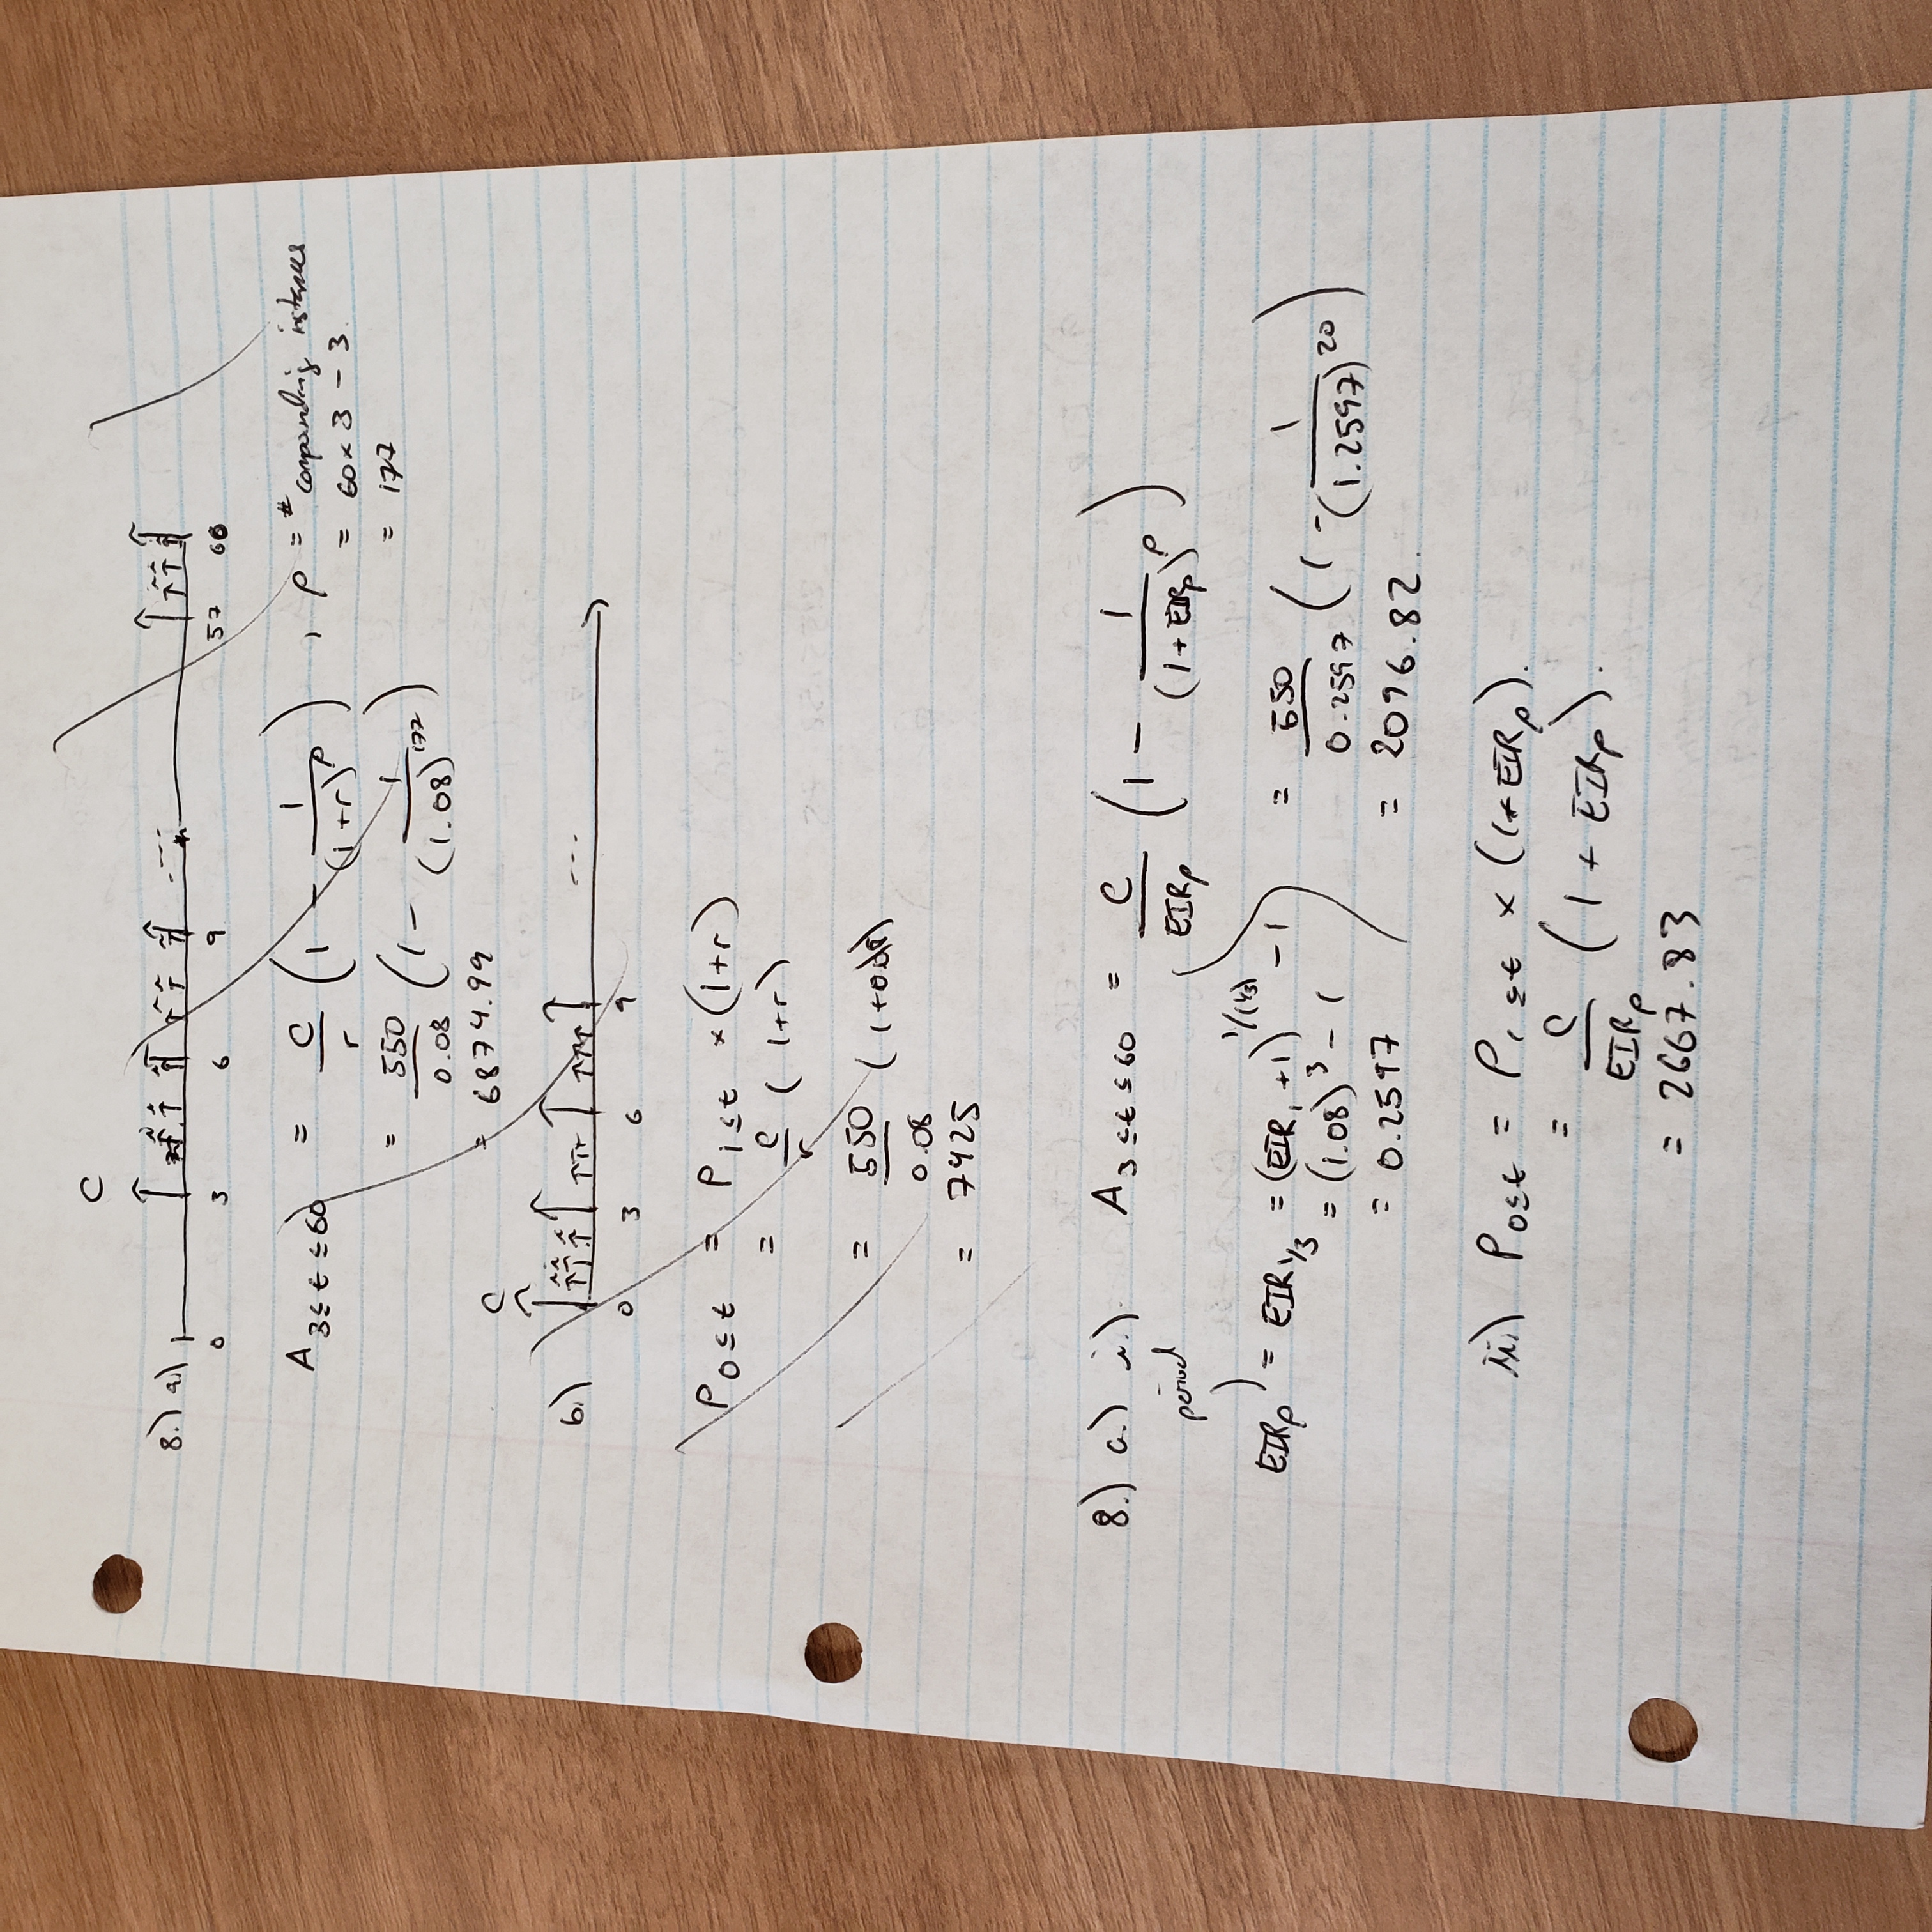 C
8.) a.)
0 3 6 9 ... 57 60
A 3≤t≤60 = C/r (1 - 1/(1+r)^p) , p = # compounding instances
= 60 × 3 - 3.
= 550/0.08 (1 - 1/(1.08)^177) = 177
= 6874.99
C
b.) ...
0 3 6 9
P 0≤t = P 1≤t × (1+r)
= C/r (1+r)
= 550/0.08 (1+0.08)
= 7425
8.) a.) i.) A 3≤t≤60 = C/EIRp (1 - 1/(1+EIRp)^p)
period
EIRp = EIR 1/3 = (EIR1 + 1)^1/(1/3) - 1 = 550/0.2597 (1 - 1/(1.2597)^20)
= (1.08)^3 - 1
= 0.2597 = 2096.82.
ii.) P 0≤t = P 1≤t × (1+EIRp).
= C/EIRp (1 + EIRp).
= 2667.83